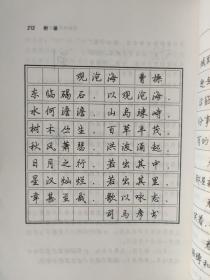 212
观沧海 曹操
东临碣石，以观沧海。
水何澹澹，山岛竦峙。
树木丛生，百草丰茂。
秋风萧瑟，洪波涌起。
日月之行，若出其中。
星汉灿烂，若出其里。
幸甚至哉，歌以咏志。